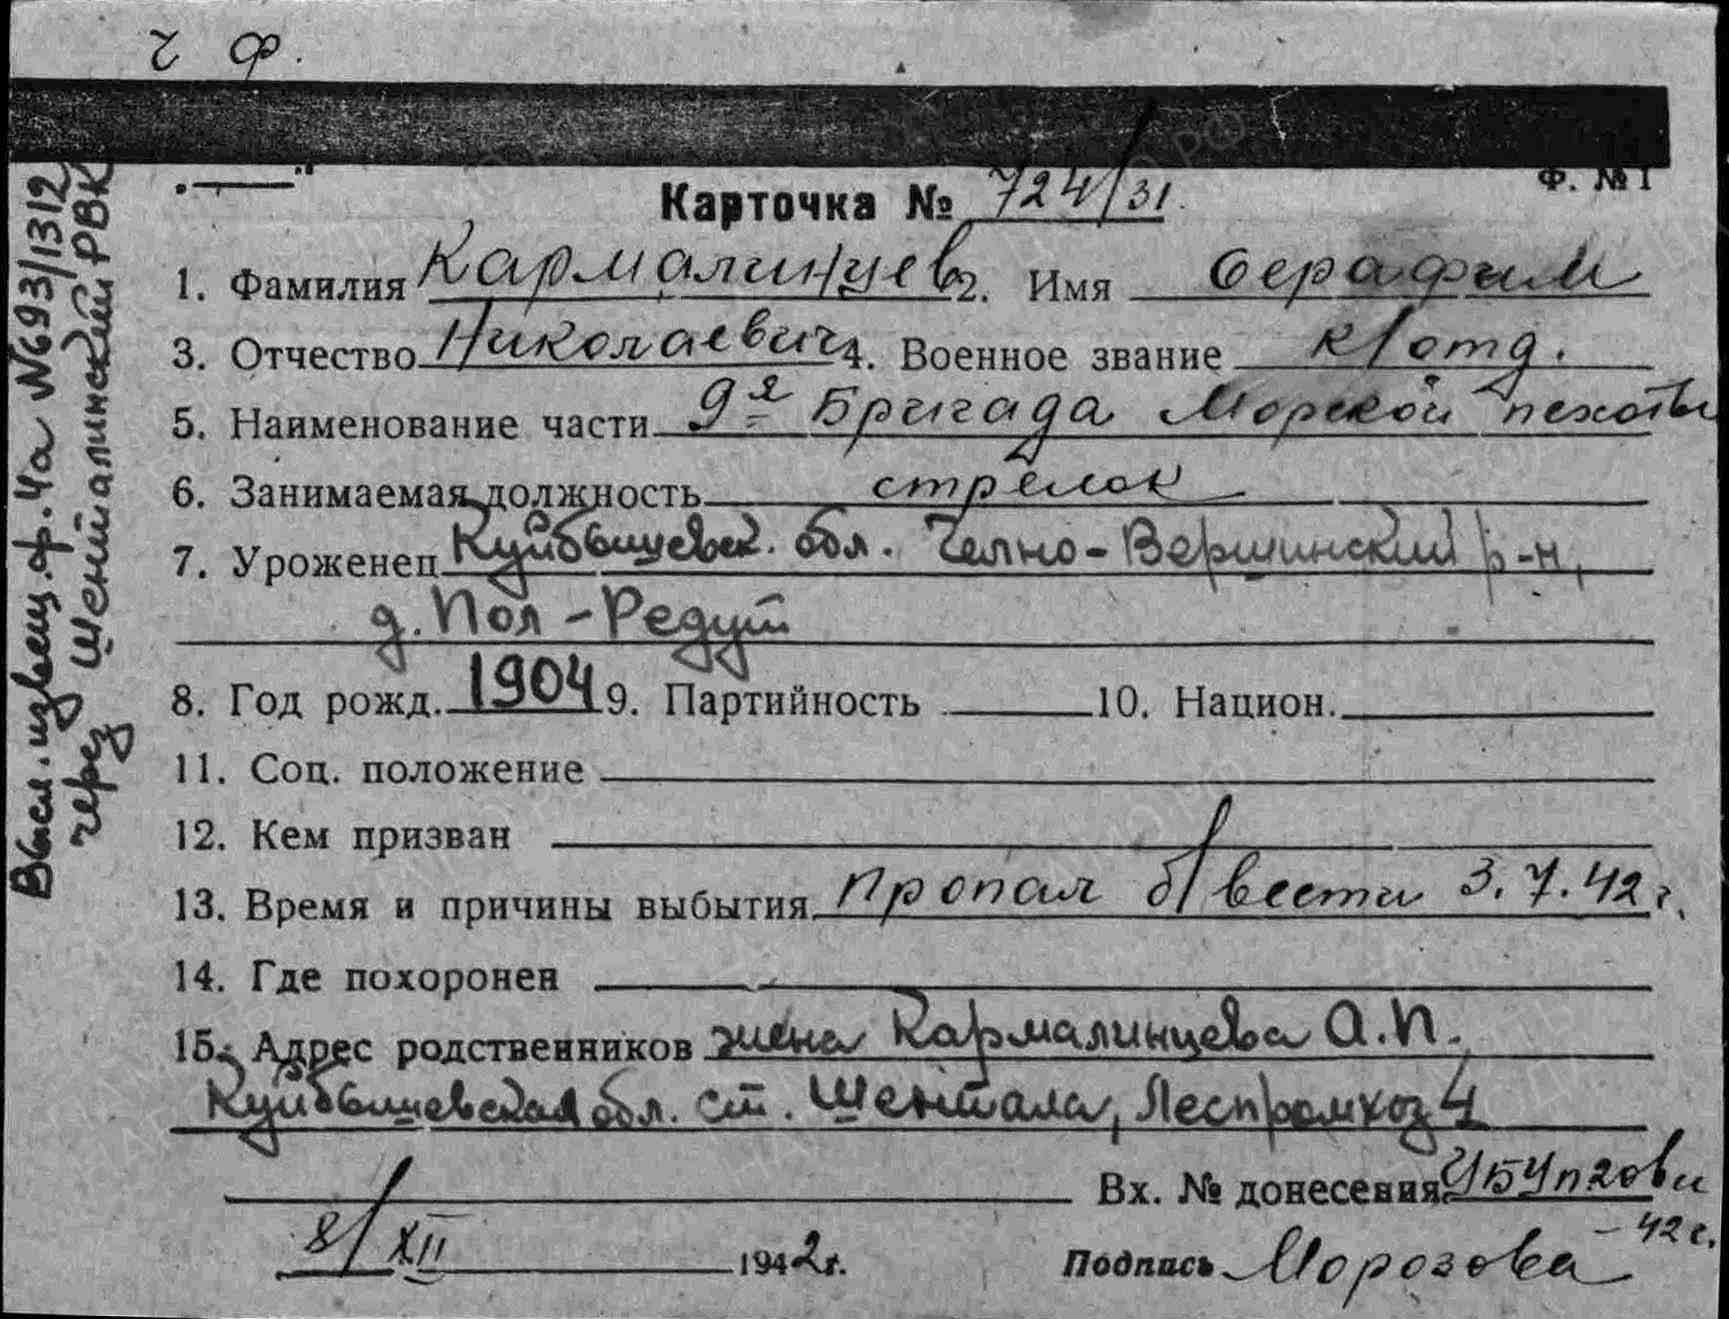 ч ф.
Ф. № 1
Карточка № 724/31
1. Фамилия Кармалинцев 2. Имя Серафим
3. Отчество Николаевич 4. Военное звание к/отд.
5. Наименование части 9я Бригада Морской пехоты
6. Занимаемая должность стрелок
7. Уроженец Куйбышевск. обл. Челно-Вершинский р-н,
д. Пол-Редут
8. Год рожд. 1904 9. Партийность 10. Национ.
11. Соц. положение
12. Кем призван
13. Время и причины выбытия Пропал б/вести 3.7.42 г.
14. Где похоронен
15. Адрес родственников жена Кармалинцева А.П.
Куйбышевская обл. ст. Шентала, Леспромхоз 4
Вх. № донесения
8/XII 1942 г. Подпись Морозова
-42 г.
Высл. извещ. ф. 4а №693/1312
через Шенталинский РВК